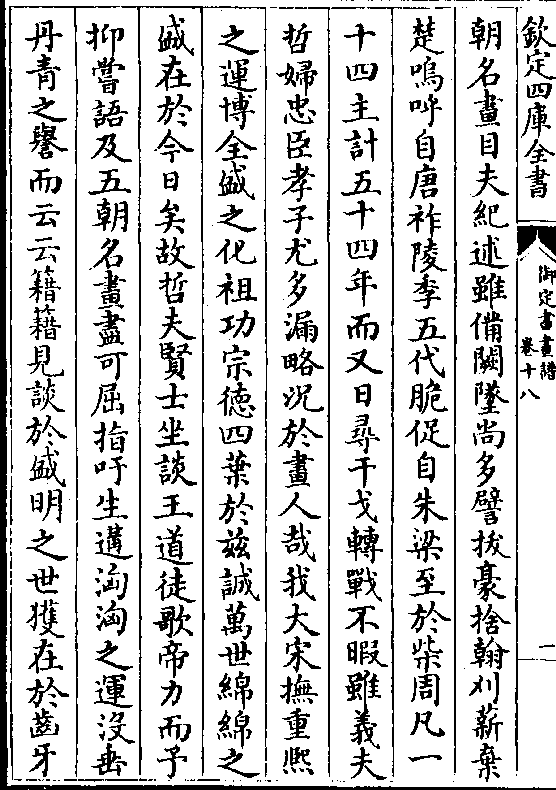 欽定四庫全書
御定書畫譜
卷十八
一
朝名畫目夫紀述雖備闕墜尚多譬拔豪捨翰刈薪棄
楚嗚呼自唐祚陵季五代脆促自朱梁至於柴周凡一
十四主計五十四年而又日尋干戈轉戰不暇雖義夫
哲婦忠臣孝子尤多漏略况於畫人哉我大宋撫重熙
之運博全盛之化祖功宗德四葉於兹誠萬世綿綿之
盛在於今日矣故哲夫賢士坐談王道徒歌帝力而予
抑嘗語及五朝名畫盡可屈指吁生遘洶洶之運沒垂
丹青之譽而云云籍籍見談於盛明之世獲在於齒牙